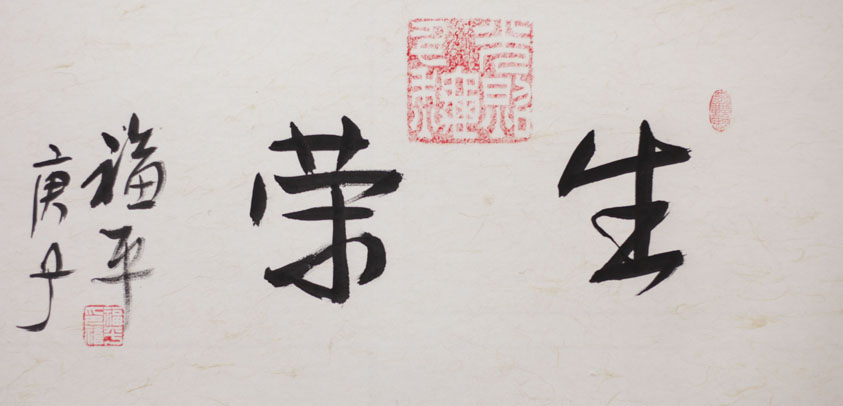 生荣
福平
庚子